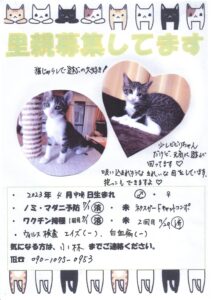 里親募集してます
猫じゃらしで遊ぶの大好き♪
少しビビりちゃん
だけど、元気に遊び
回ってます♡
吸い込まれそうな きれいな目をしています。
抱っこもできますよ♡
・2023年4月中旬生まれ ♂・♀
・ノミ・マダニ予防 済・未
・ワクチン接種 済・未 2回目
・ウィルス検査 エイズ(−)、白血病(−)
気になる方は、小林 までご連絡ください。
TEL☎ 090-1095-0953